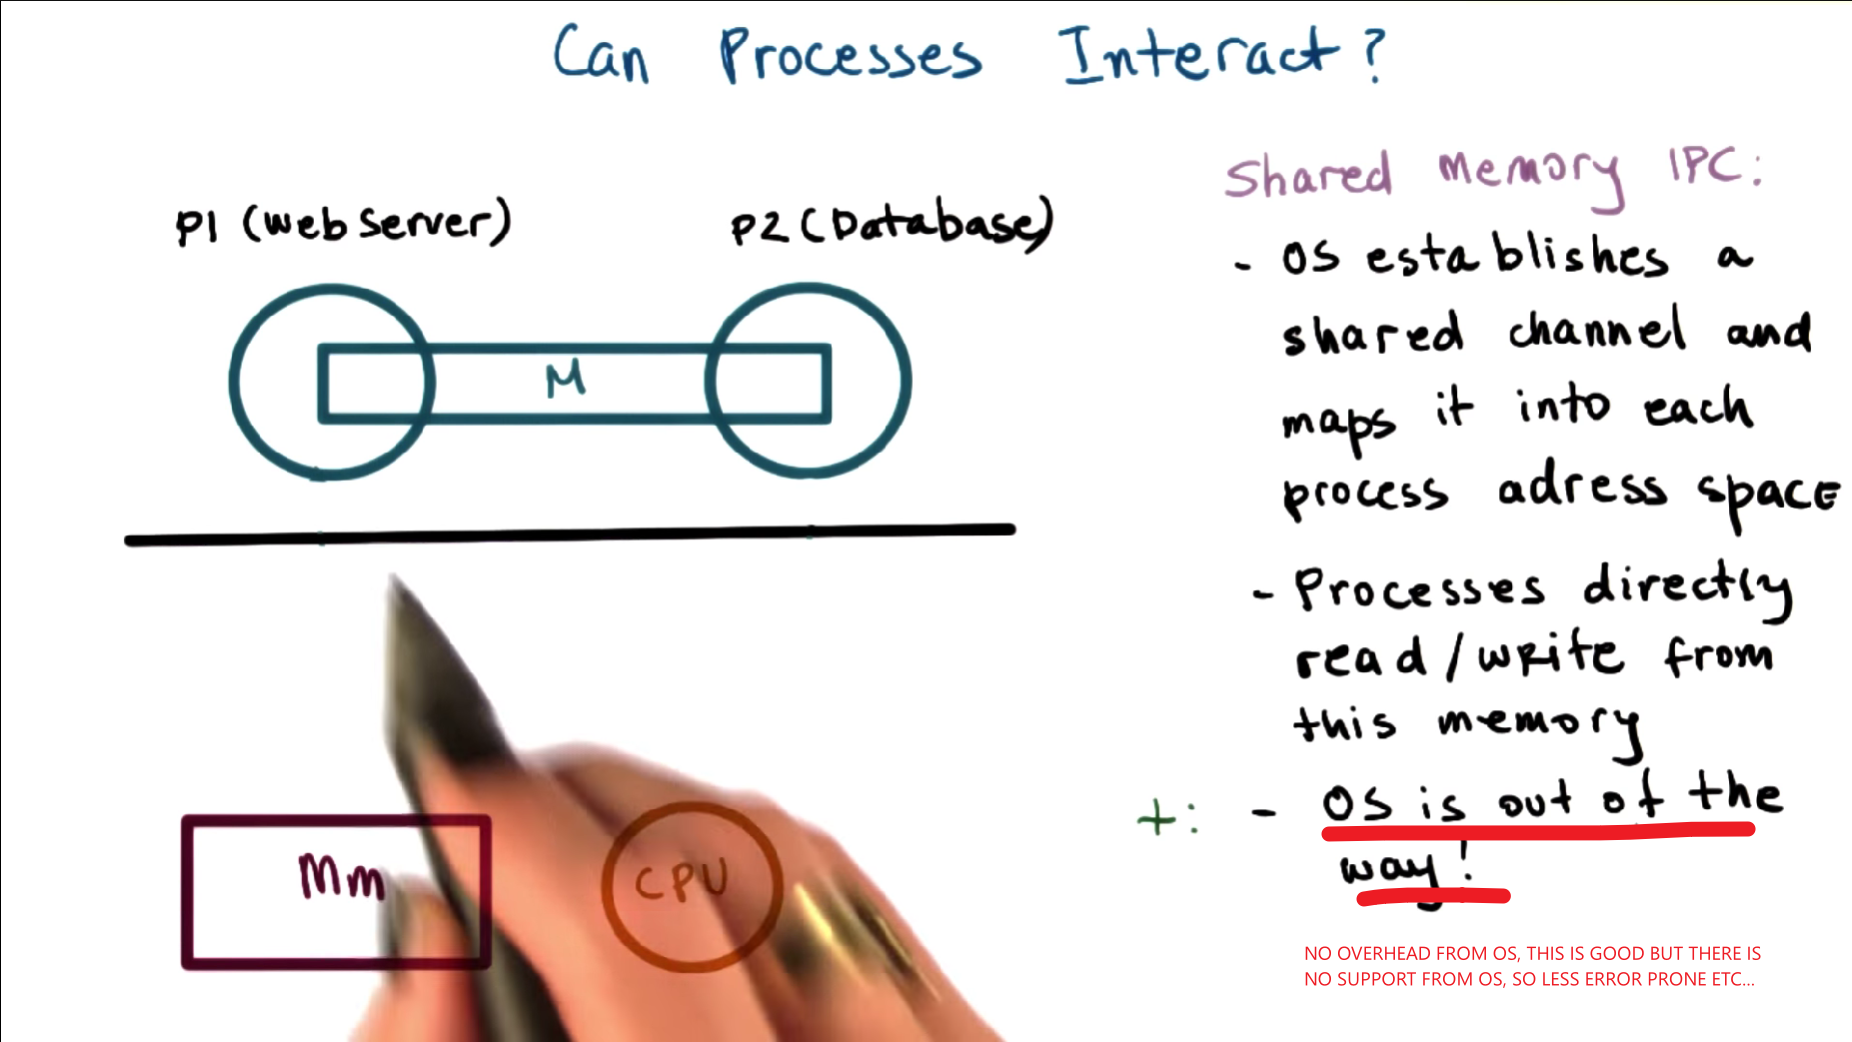 Can Processes Interact?
P1 (web server)
P2 (Database)
M
Mm
CPU
Shared Memory IPC:
- OS establishes a
shared channel and
maps it into each
process adress space
- Processes directly
read/write from
this memory
+: - OS is out of the
way!
NO OVERHEAD FROM OS, THIS IS GOOD BUT THERE IS
NO SUPPORT FROM OS, SO LESS ERROR PRONE ETC...